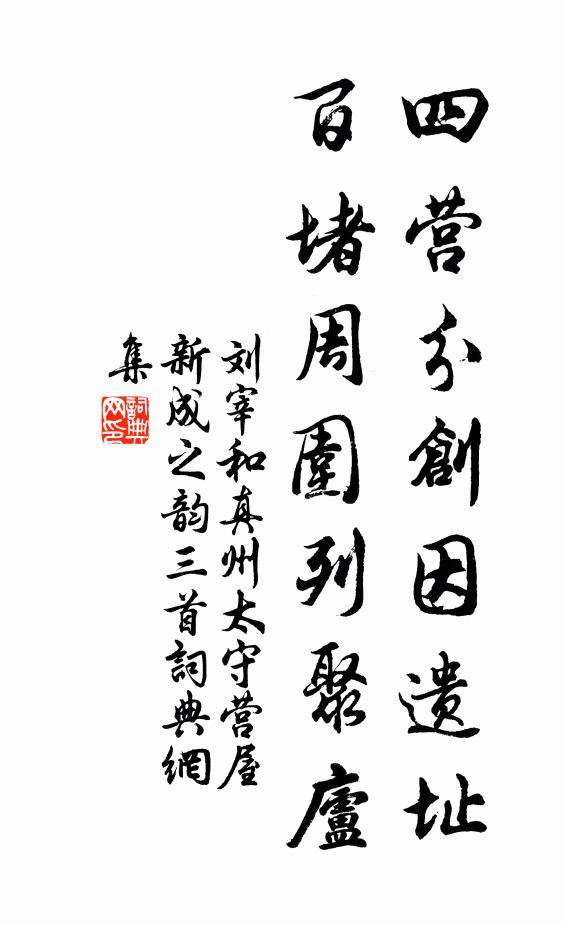 四营分創因遺址
百堵周圍列聚廬
刘宰和真州太守营屋
新成之韵三首詞典網
集
詞典
网印